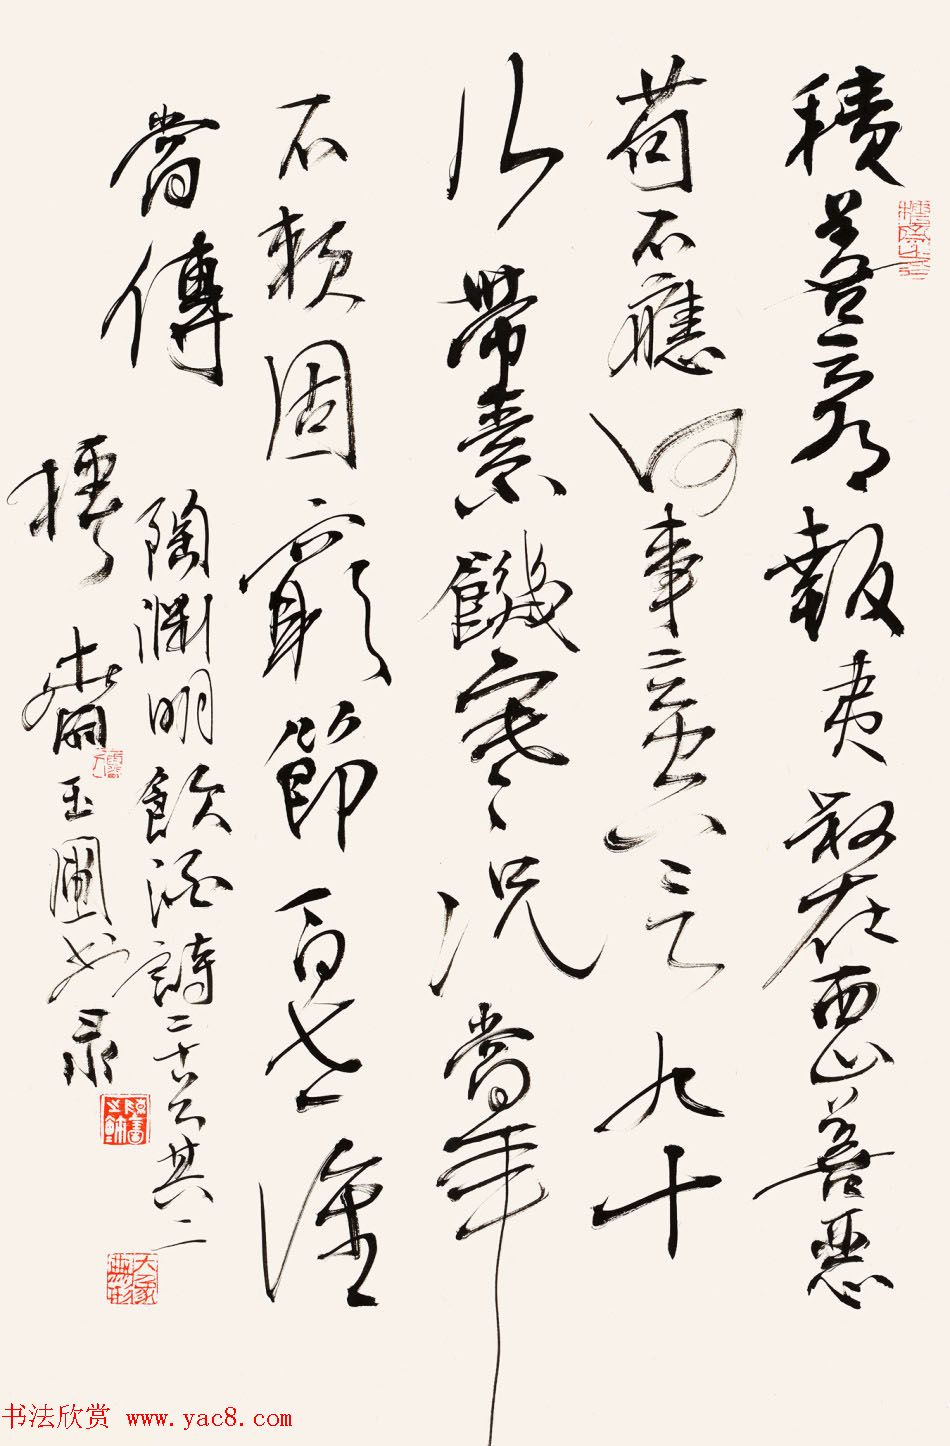 積善云有報夷叔在西山善惡
苟不應何事立空言九十
行帶索饑寒況當年
不賴固窮節百世誰
當傳
陶淵明飲酒詩二十首其二
齋玉圃书录
大象無形
书法欣赏 www.yac8.com